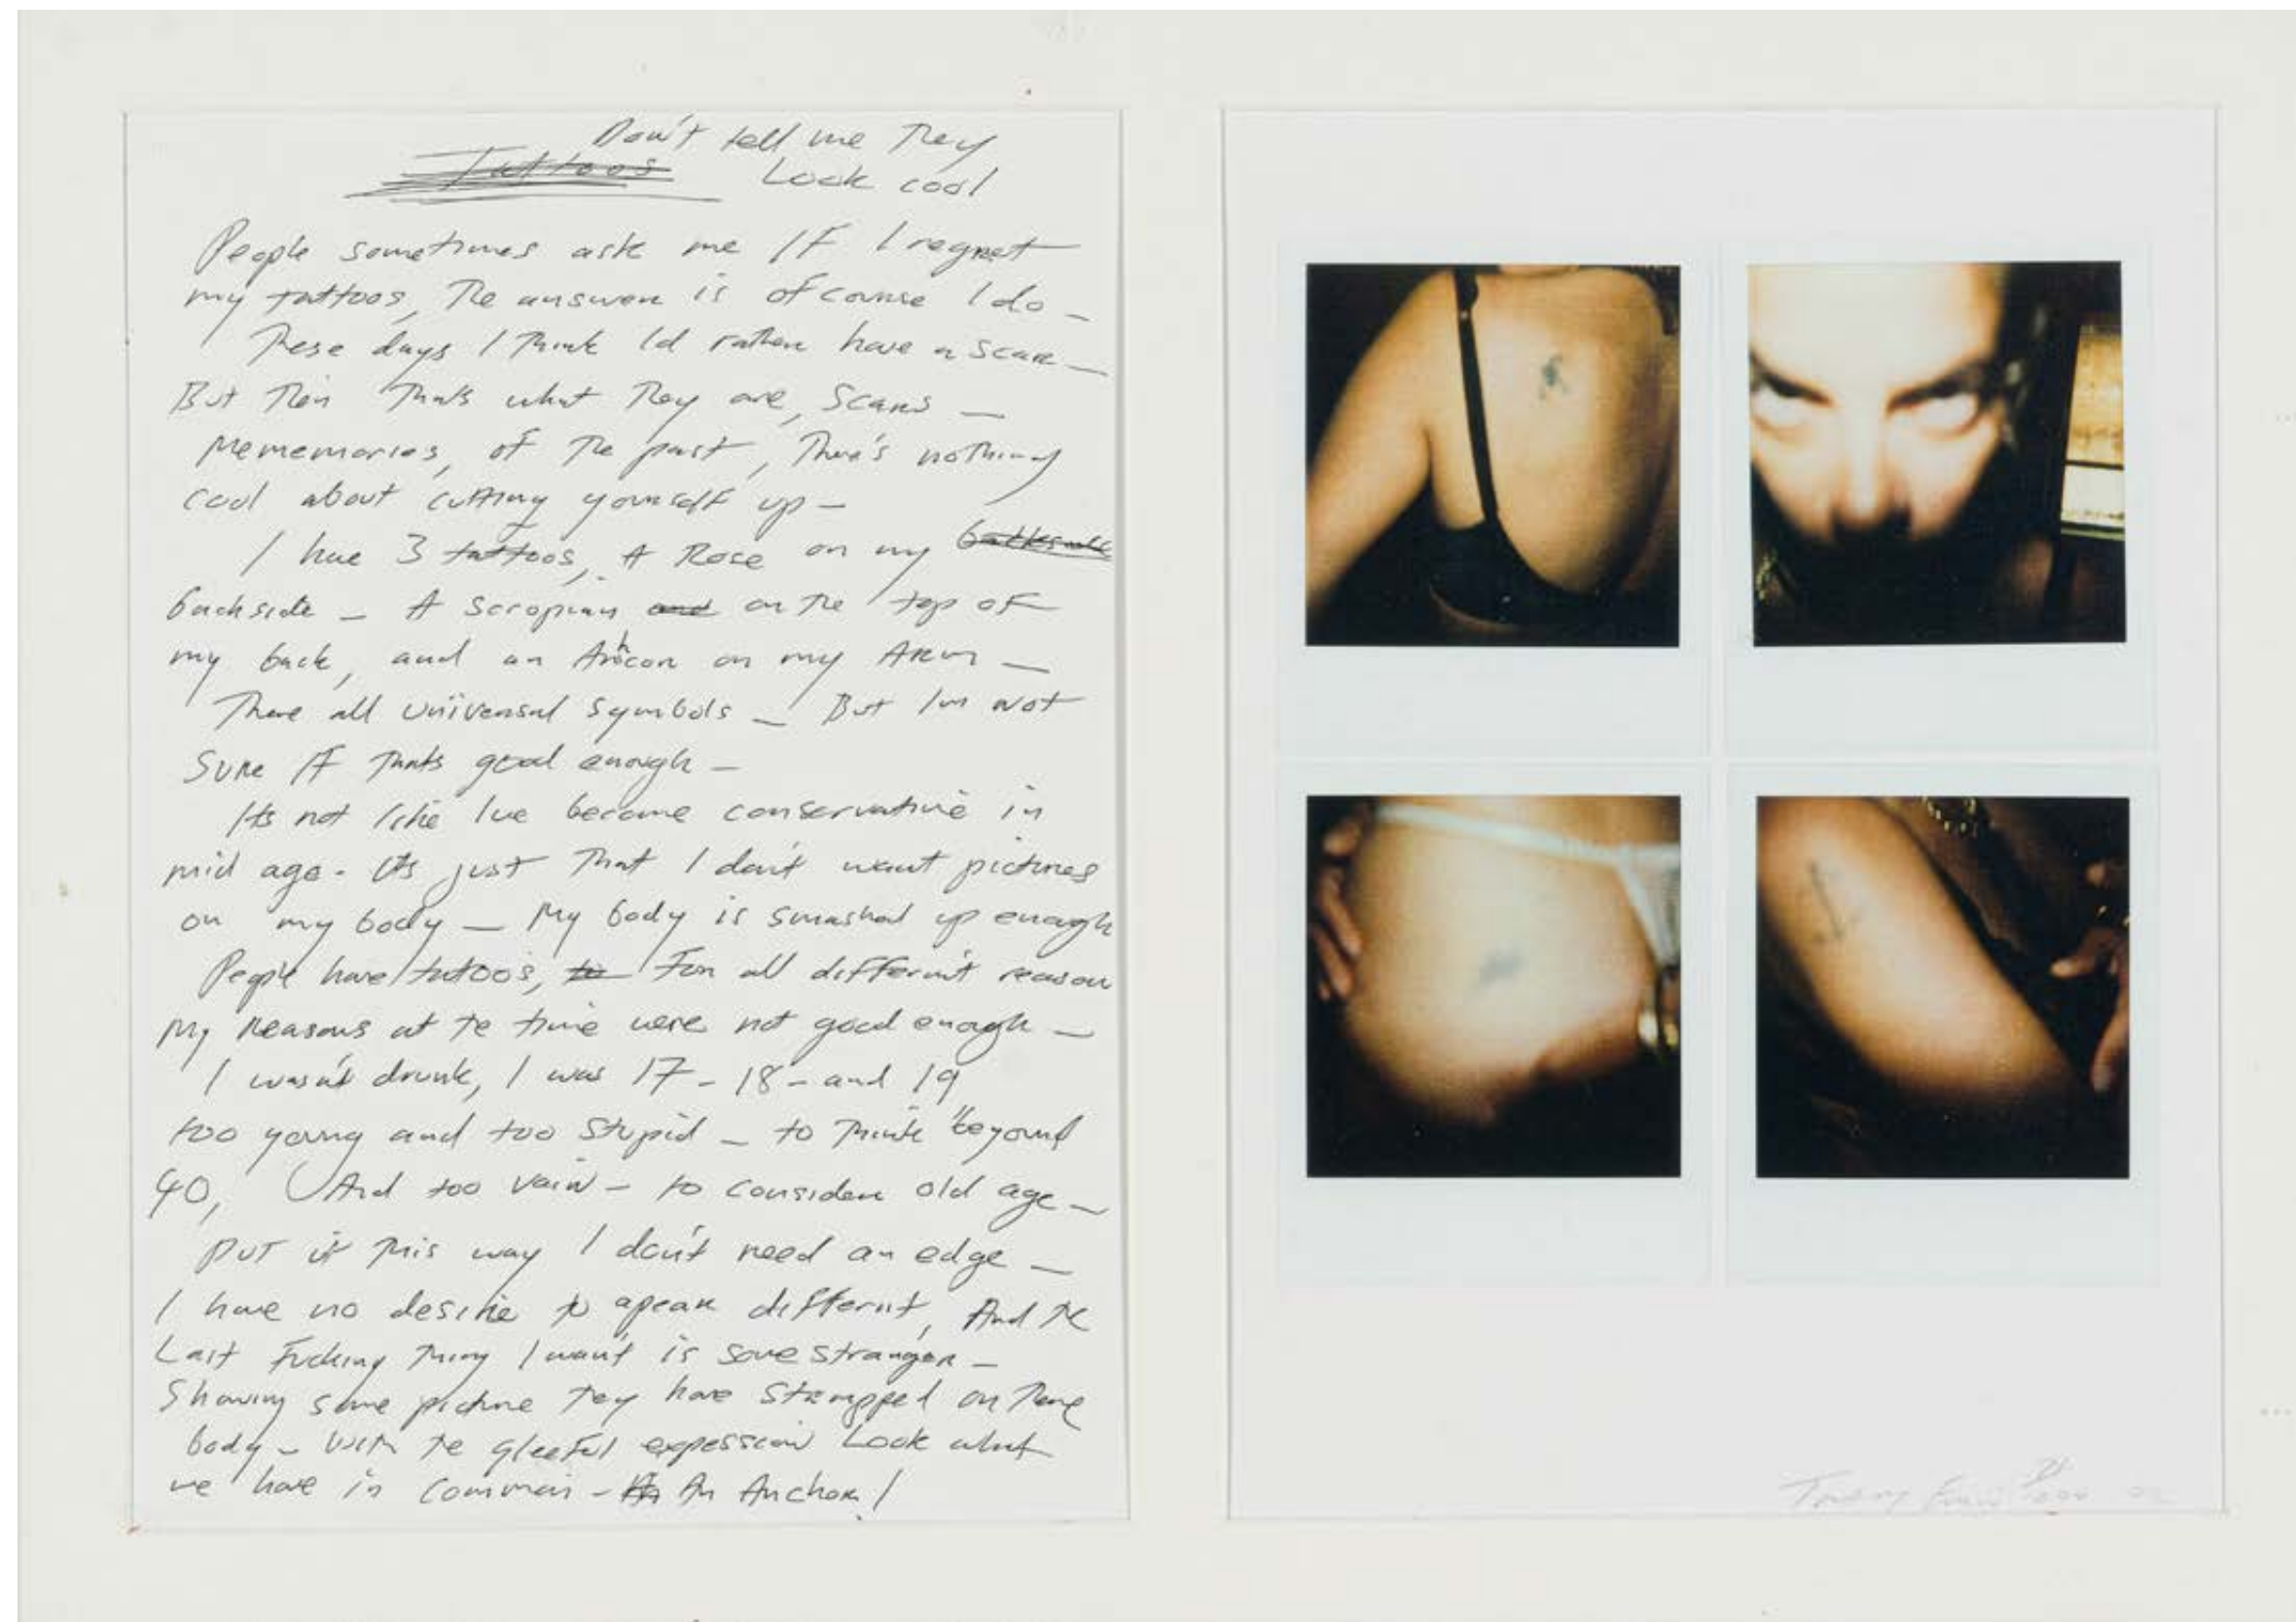 Don't tell me They
Tattoos Look cool
People sometimes ask me IF I regret
my tattoos, The answer is ofcourse I do –
These days I Think Id rather have a scar –
But Then Thats what They are, Scars –
Mememories, of The past, There's nothing
cool about cutting yourself up –
I have 3 tattoos, A Rose on my
backside – A Scropian and on the top of
my back, and an Anhcor on my ARM –
There all universal Symbols – But Im not
Sure IF Thats good enough –
Its not like Ive become conservative in
mid age. Its just That I don't want pictures
on my body – My body is smashed up enough
People have tattoos, to For all differint reason
My Reasons at te time were not good enough –
I wasn't drunk, I was 17 – 18 – and 19
too young and too Stupid – to Think beyound
40, And too vain – to consider old age –
PUT it This way I don't need an edge –
I have no desire to apear differnt, And te
Last Fucking Thing I want is some stranger –
Showing some picture tey have Stampped on There
body – With te gleeful expession Look what
we have in common – An An Anchor!
Tracey Emin